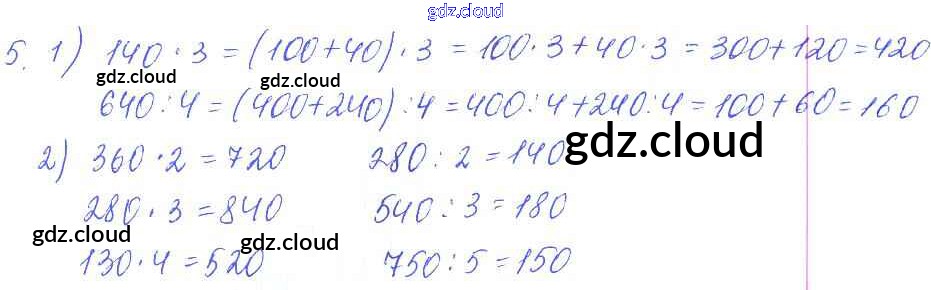 gdz.cloud
5. 1) 140 · 3 = (100+40) · 3 = 100 · 3 + 40 · 3 = 300+120 = 420
gdz.cloud gdz.cloud
640 : 4 = (400+240) : 4 = 400 : 4 + 240 : 4 = 100 + 60 = 160
2) 360 · 2 = 720 280 : 2 = 140 gdz.cloud
280 · 3 = 840 540 : 3 = 180
gdz.cloud gdz.cloud
130 · 4 = 520 750 : 5 = 150